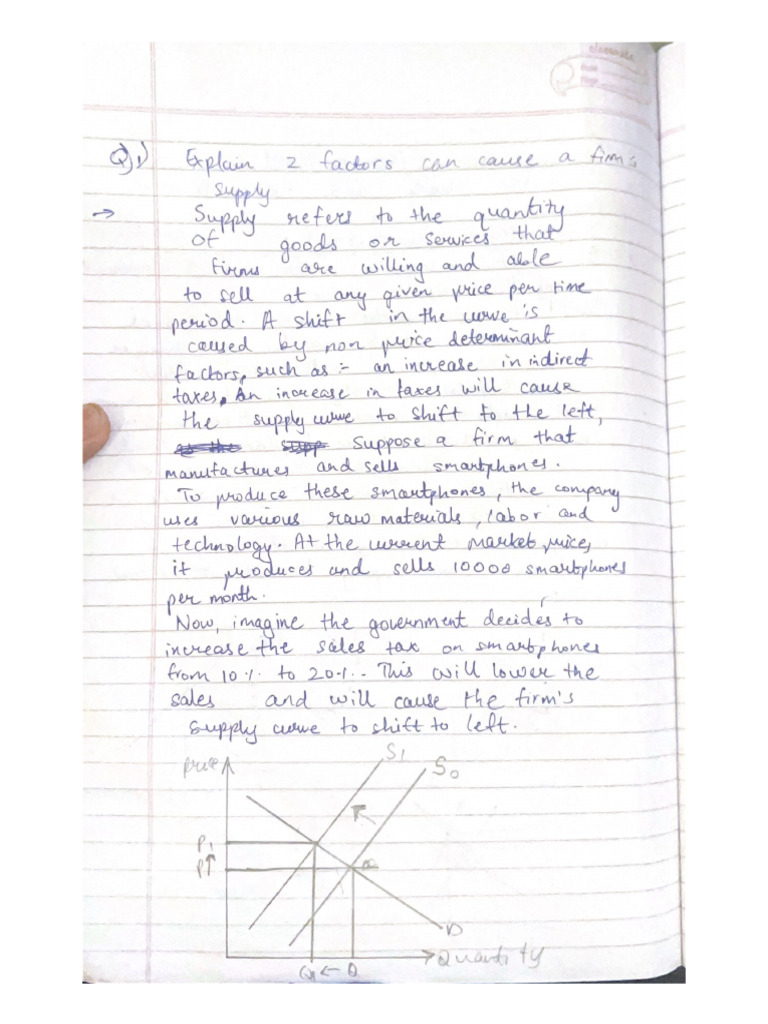 classmate
Date
Page
Q.1) Explain 2 factors can cause a firm's
supply
→ Supply refers to the quantity
of goods or services that
firms are willing and able
to sell at any given price per time
period. A shift in the curve is
caused by non price determinant
factors, such as :- an increase in indirect
taxes. An increase in taxes will cause
the supply curve to shift to the left,
Suppose a firm that
manufactures and sells smartphones.
To produce these smartphones, the company
uses various raw materials, labor and
technology. At the current market price,
it produces and sells 10000 smartphones
per month.
Now, imagine the government decides to
increase the sales tax on smartphones
from 10% to 20%. This will lower the
sales and will cause the firm's
supply curve to shift to left.
Price S1 S0
P1
P↑
D
Q1 ← Q Quantity